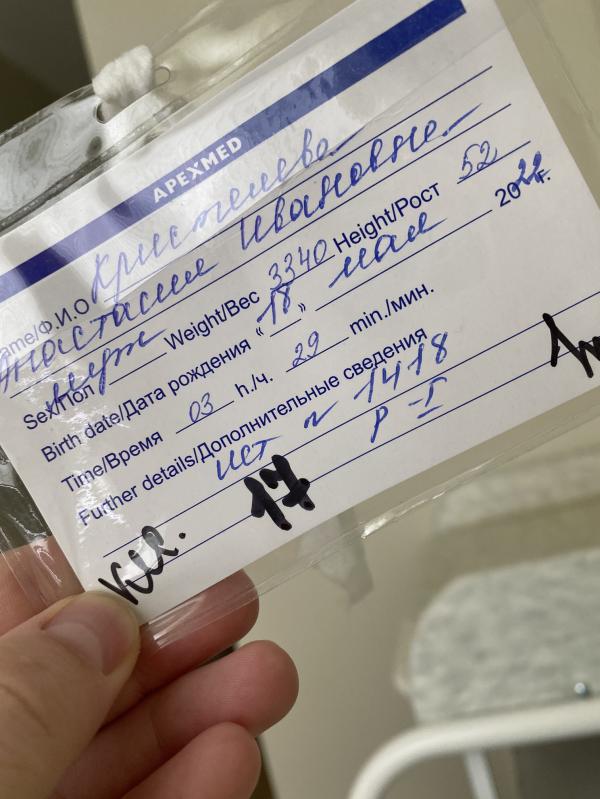 APEXMED
Name/Ф.И.О Кристелева
Анастасии Ивановне
Sex/Пол муж Weight/Вес 3340 Height/Рост 52
Birth date/Дата рождения "18" мая 2022г.
Time/Время 03 h./ч. 29 min./мин.
Further details/Дополнительные сведения
ист N 1418
P-I
17